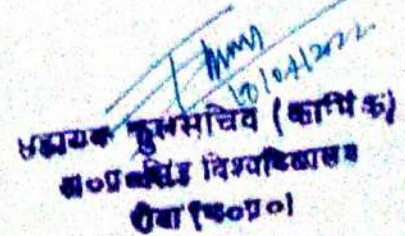 10/04/2022
सहायक कुलसचिव (कार्मिक)
अ०प्र०सिंह विश्वविद्यालय
रीवा (म०प्र०)